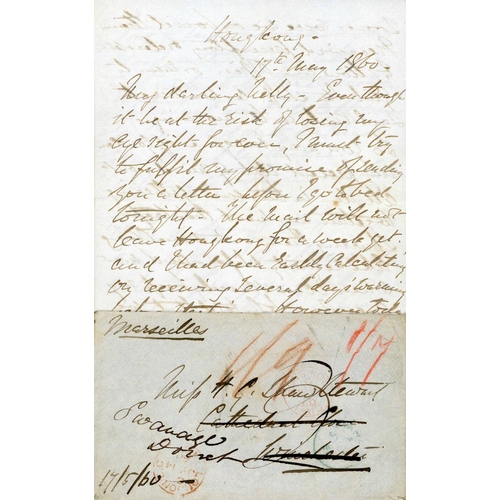 Hongkong -
17th May 1860 -
My darling Nelly - Even though
it be at the risk of losing my
eye sight for ever, I must try
to fulfil my promise of sending
you a letter before I go to bed
tonight - The Mail will not
leave Hongkong for a week yet
and I had been calculating
on receiving several days warning
However
Marseilles
1/9
Miss H. C. Shaw Stewart
Cathedral
Swanage
Dorset Winchester
17/5/60 -